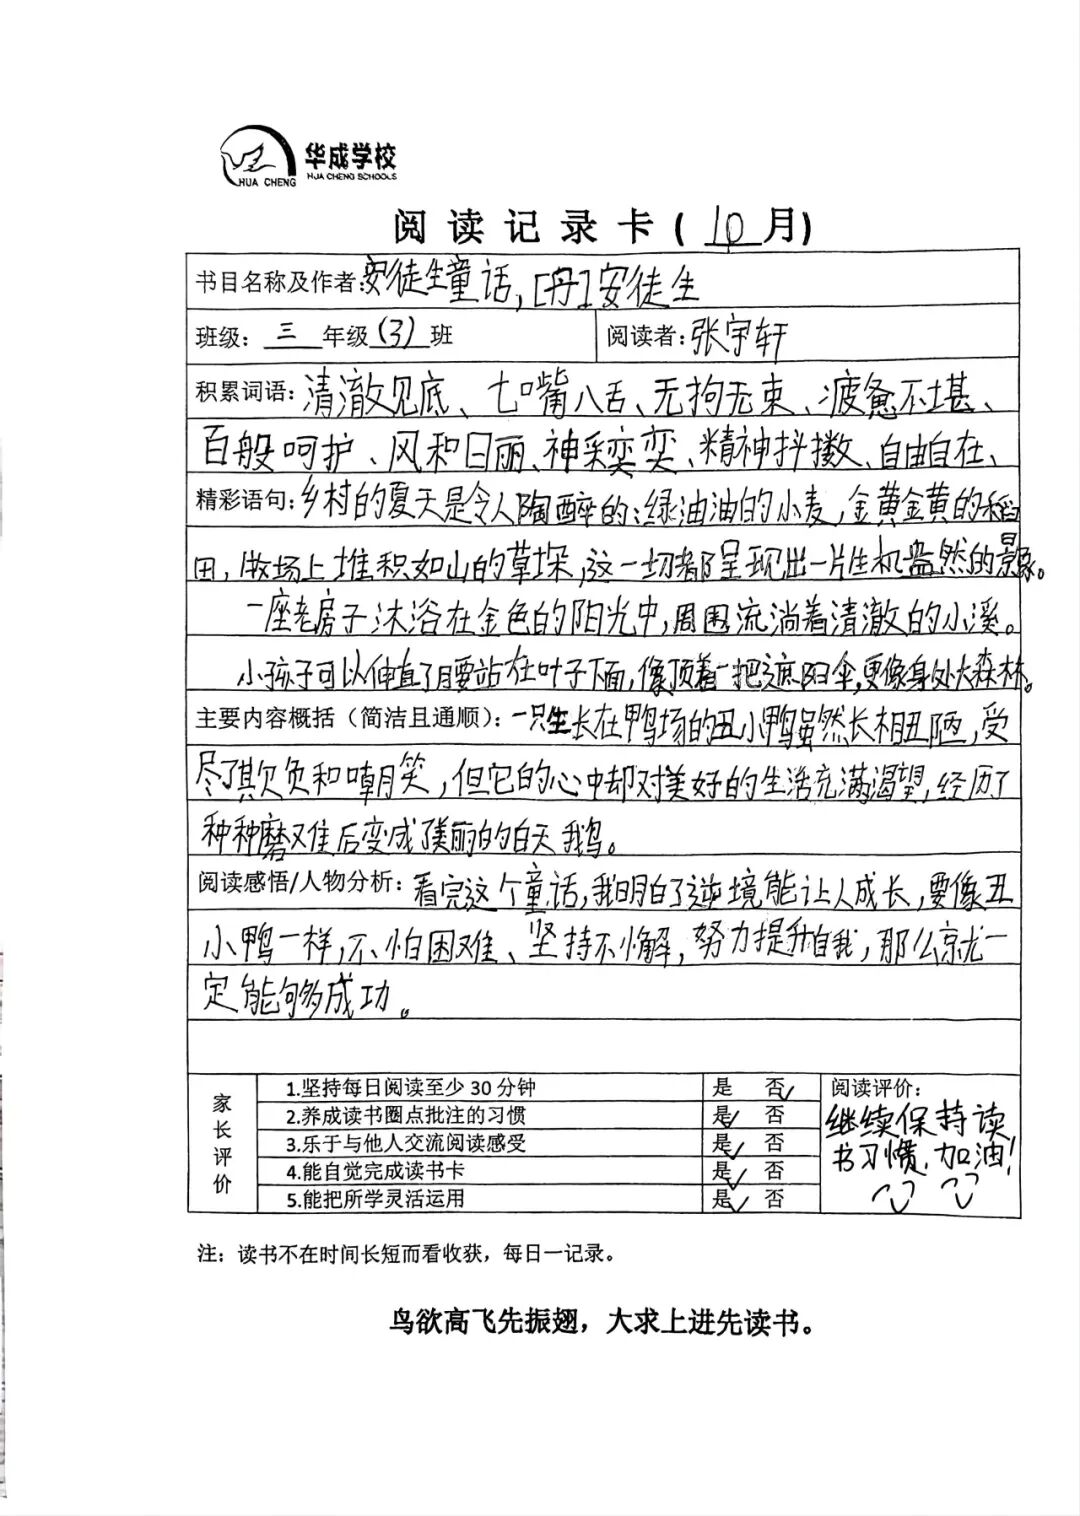 华成学校
HUA CHENG
HUA CHENG SCHOOLS
阅读记录卡(10月)
书目名称及作者:安徒生童话,[丹]安徒生
班级:三年级(3)班 阅读者:张宇轩
积累词语:清澈见底、七口嘴八舌、无拘无束、疲惫不堪、
百般呵护、风和日丽、神采奕奕、精神抖擞、自由自在、
精彩语句:乡村的夏天是令人陶醉的:绿油油的小麦,金黄金黄的稻
田,牧场上堆积如山的草垛,这一切都呈现出一片生机盎然的景象。
一座老房子沐浴在金色的阳光中,周围流淌着清澈的小溪。
小孩子可以伸直了腰站在叶子下面,像顶着一把遮阳伞,更像身处大森林。
主要内容概括(简洁且通顺):一只生长在鸭场的丑小鸭虽然长相丑陋,受
尽了欺负和嘲笑,但它的心中却对美好的生活充满渴望,经历了
种种磨难后变成了美丽的白天鹅。
阅读感悟/人物分析:看完这个童话,我明白了逆境能让人成长,要像丑
小鸭一样,不怕困难、坚持不懈,努力提升自我,那么就一
定能够成功。
家长评价
1.坚持每日阅读至少30分钟 是 否✓
2.养成读书圈点批注的习惯 是✓ 否
3.乐于与他人交流阅读感受 是✓ 否
4.能自觉完成读书卡 是✓ 否
5.能把所学灵活运用 是✓ 否
阅读评价:
继续保持读
书习惯,加油!
注:读书不在时间长短而看收获,每日一记录。
鸟欲高飞先振翅,大求上进先读书。